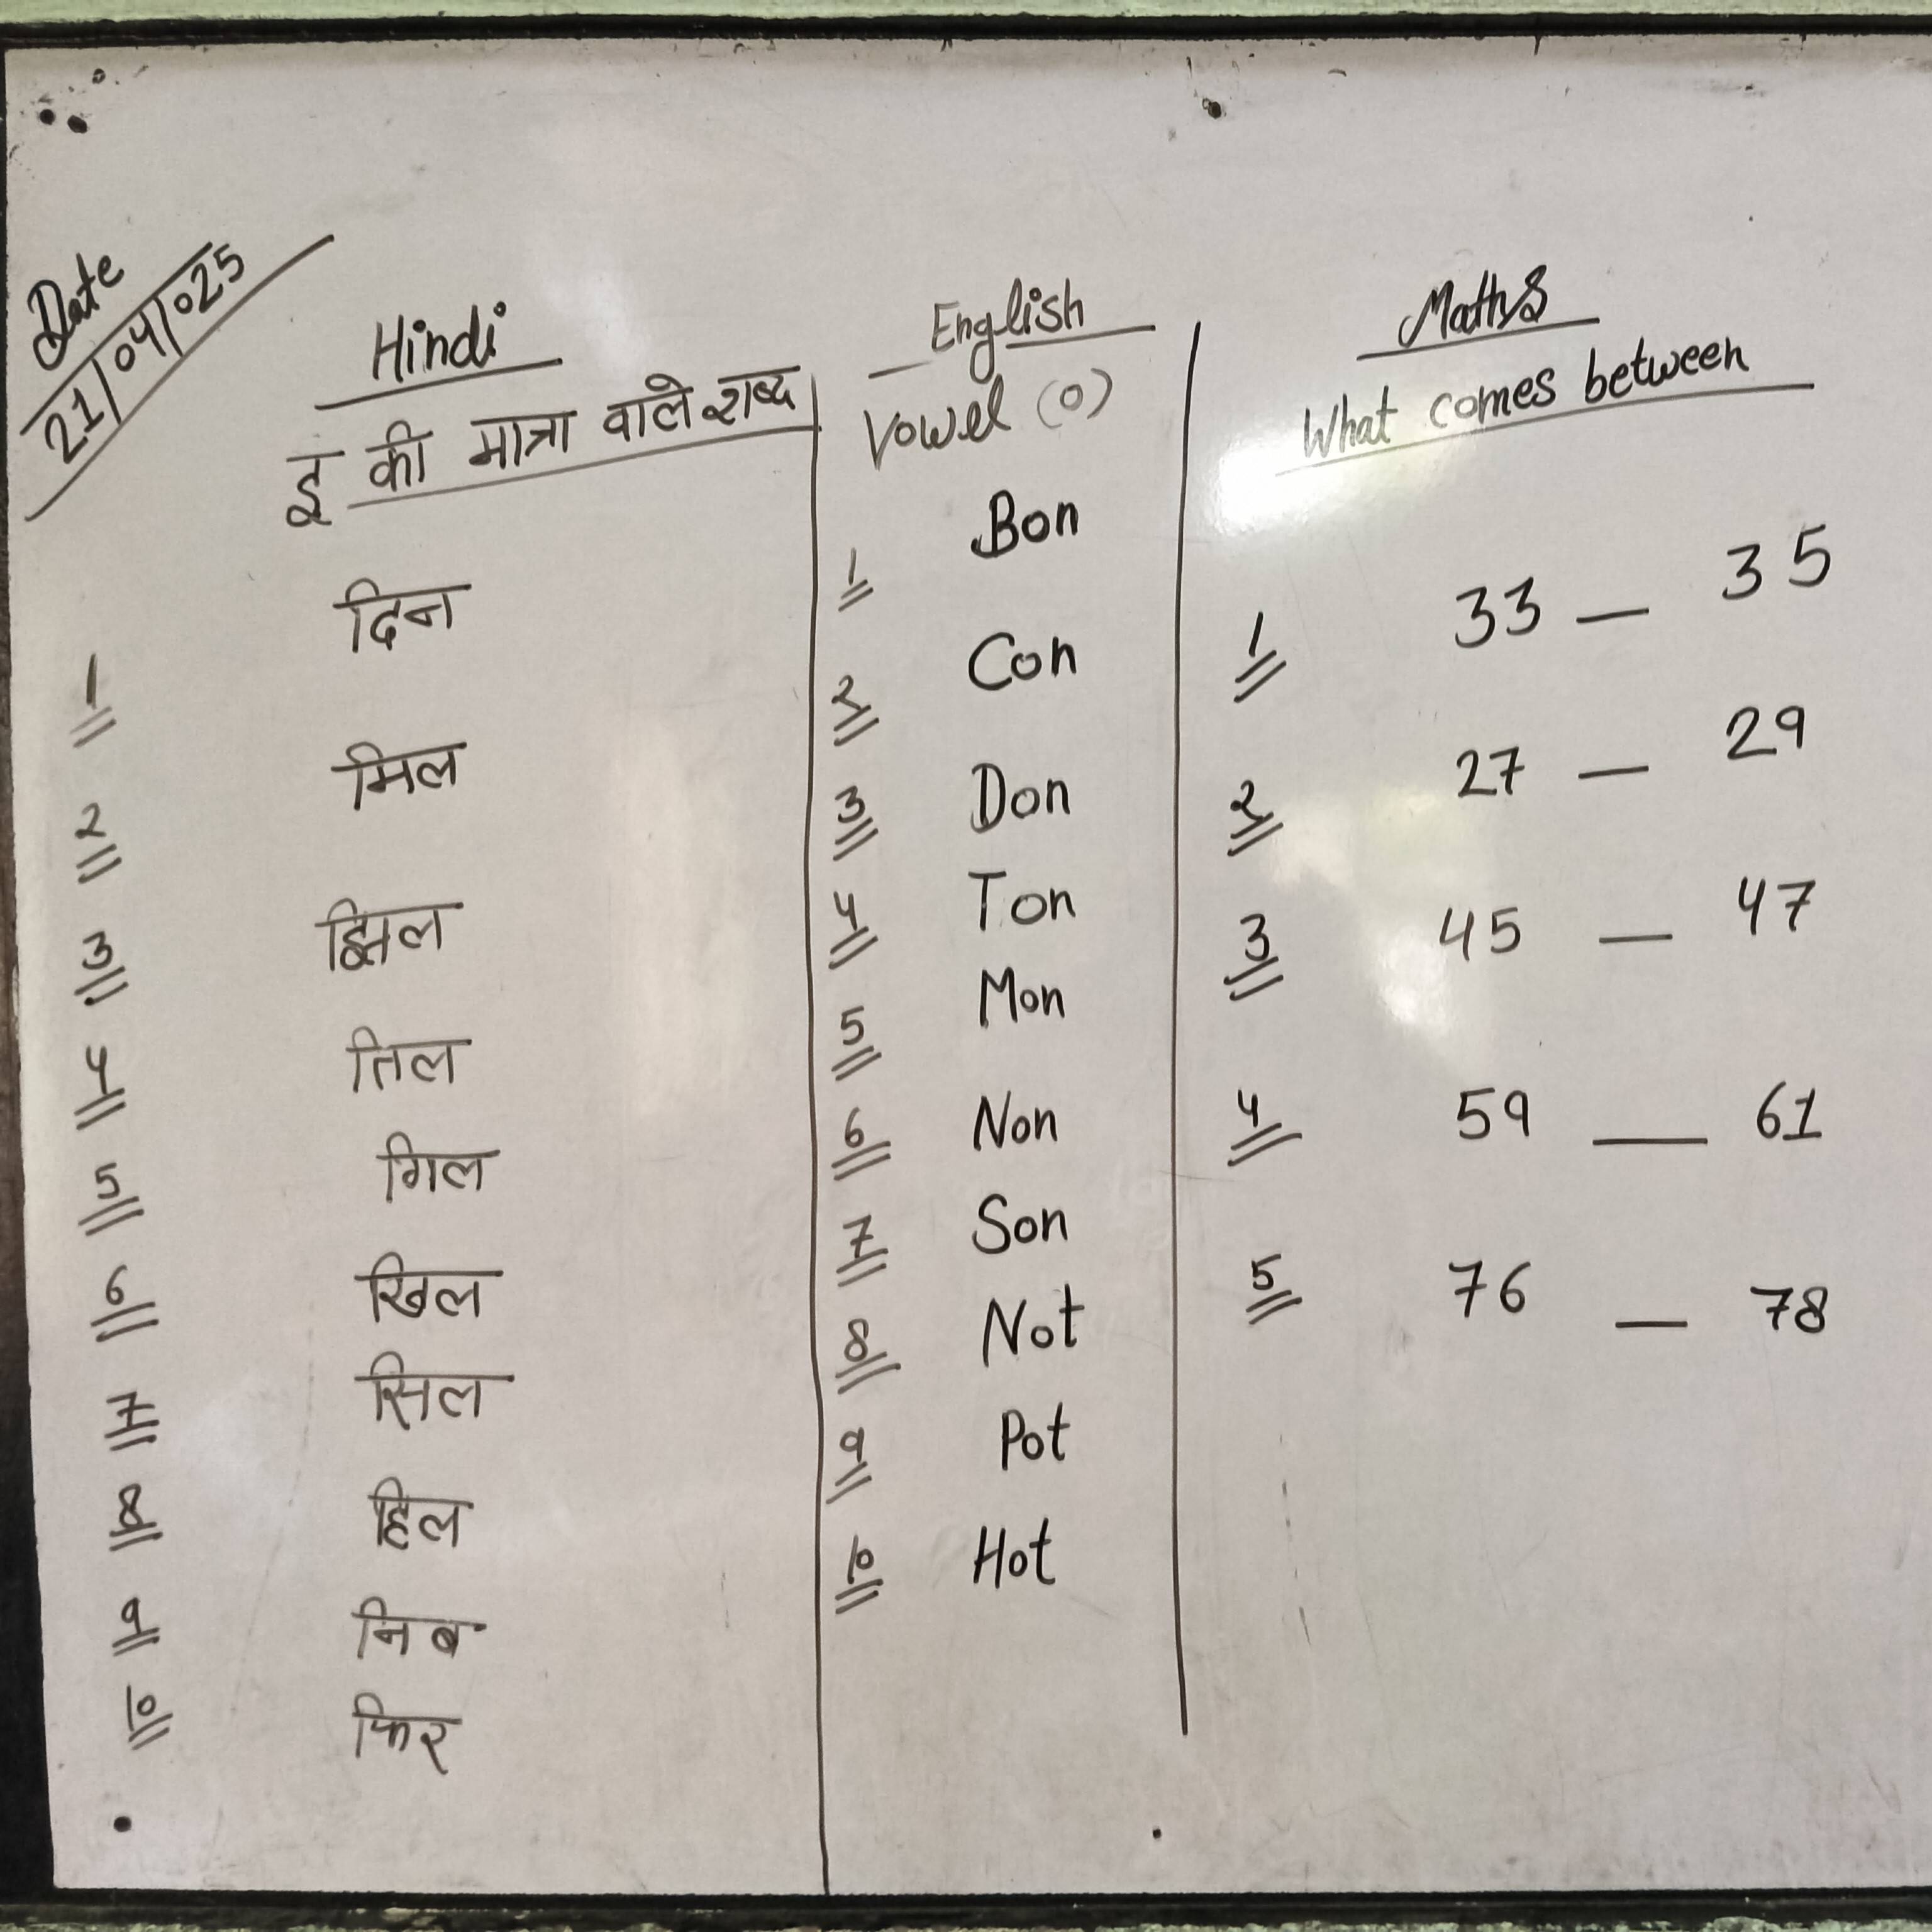 Date
21/04/025
Hindi
इ की मात्रा वाले शब्द
1 दिन
2 मिल
3 झिल
4 तिल
5 गिल
6 खिल
7 सिल
8 हिल
9 निब
10 फिर
English
Vowel (o)
1 Bon
2 Con
3 Don
4 Ton
5 Mon
6 Non
7 Son
8 Not
9 Pot
10 Hot
Maths
What comes between
1 33 — 35
2 27 — 29
3 45 — 47
4 59 — 61
5 76 — 78